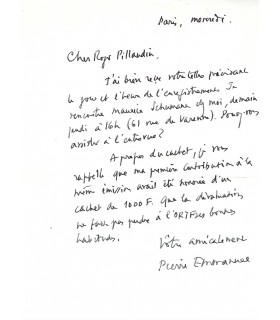 Paris, mercredi.
Cher Roger Pillaudin,
J'ai bien reçu votre lettre précisant
le jour et l'heure de l'enregistrement. Je
rencontre Maurice Schumann chez moi, demain
jeudi à 16h (61 rue de Varenne). Pouvez-vous
assister à l'entrevue?
A propos du cachet, je vous
rappelle que ma première contribution à la
même émission avait été honorée d'un
cachet de 1000 F. Que la dévaluation
ne fasse pas perdre à l'ORTF ses bonnes
habitudes.
Votre amicalement
Pierre Emmanuel